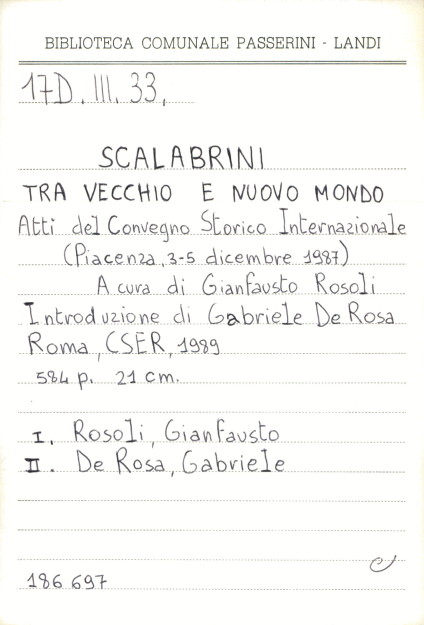 BIBLIOTECA COMUNALE PASSERINI - LANDI
17D. III. 33,
SCALABRINI
TRA VECCHIO E NUOVO MONDO
Atti del Convegno Storico Internazionale
(Piacenza, 3-5 dicembre 1987)
A cura di Gianfausto Rosoli
Introduzione di Gabriele De Rosa
Roma, CSER, 1989
584 p. 21 cm.
I. Rosoli, Gianfausto
II. De Rosa, Gabriele
186 697